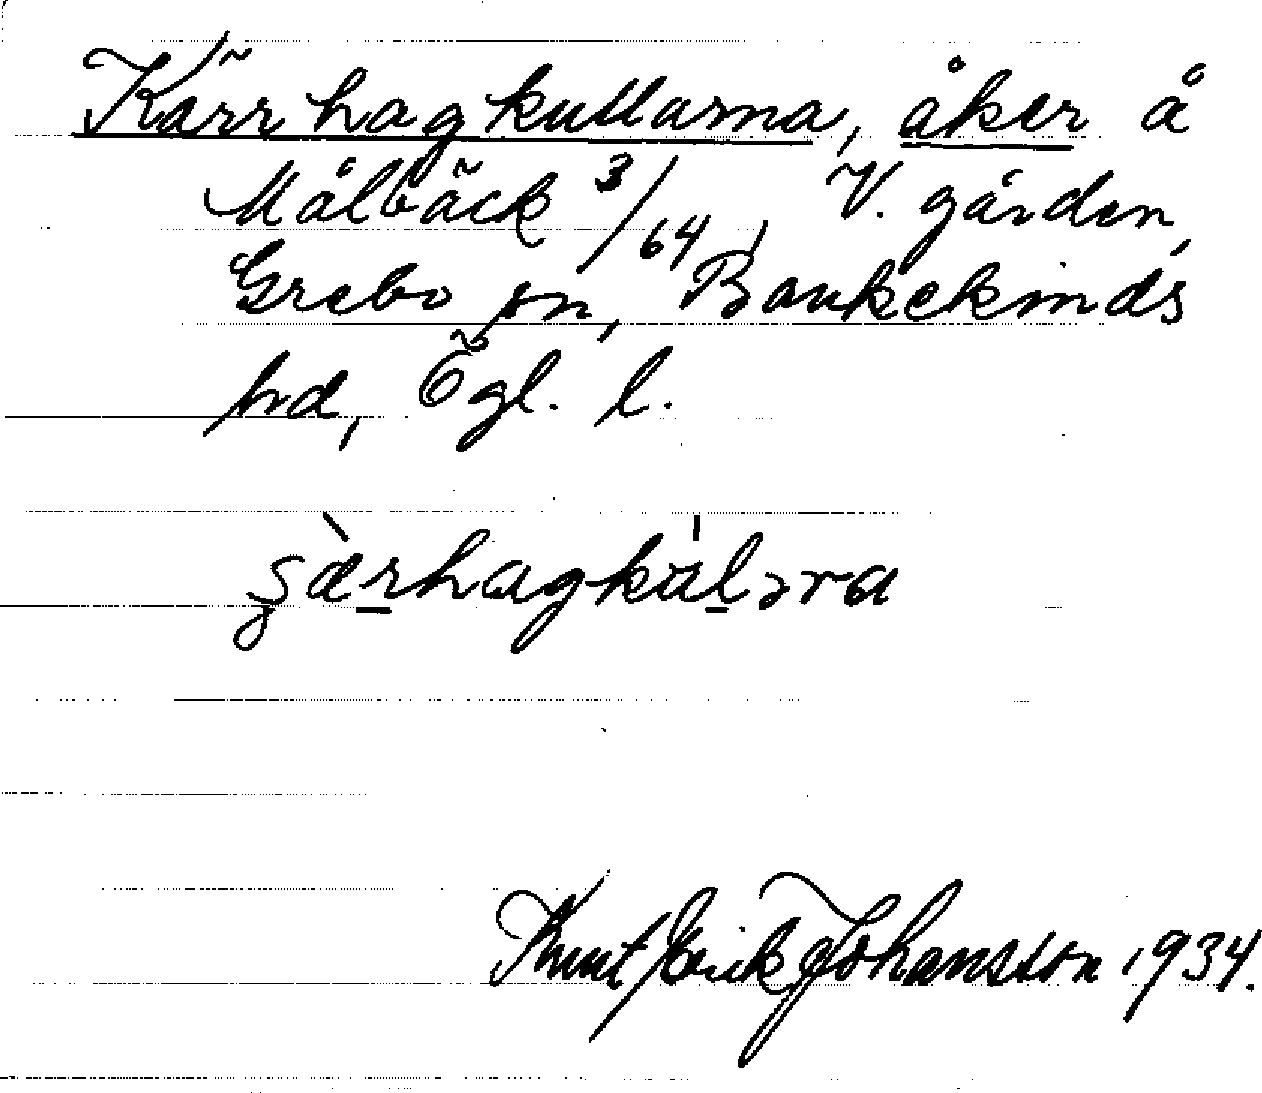 Kärrhagkullarna, åker å
Målbäck 3/64, V. gården,
Grebo sn, Bankekinds
hd, Ögl. l.
Knut Erik Johansson 1934.